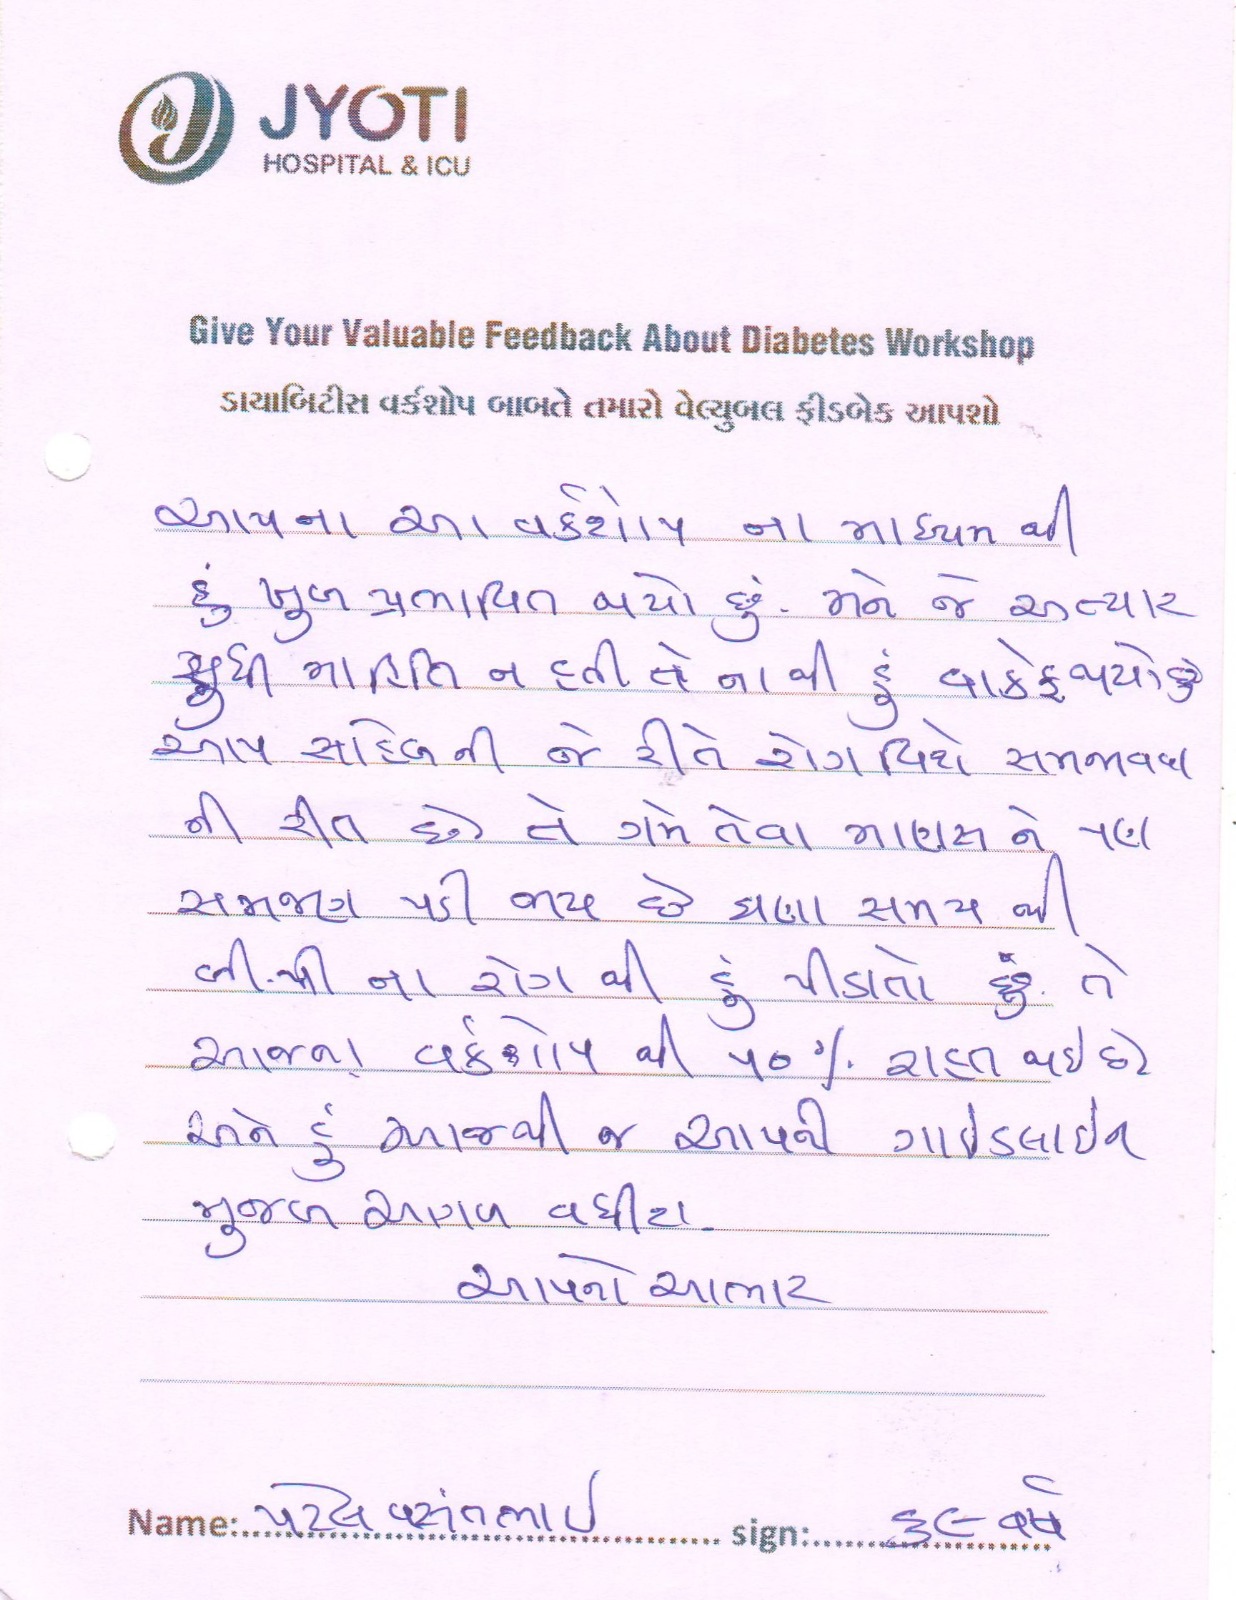 JYOTI
HOSPITAL & ICU
Give Your Valuable Feedback About Diabetes Workshop
ડાયાબિટીસ વર્કશોપ બાબતે તમારો વેલ્યુબલ ફીડબેક આપશો
આપના આ વર્કશોપ ના માધ્યમ થી
હું ખુબ પ્રભાવિત થયો છું. મને જે અત્યાર
સુધી માહિતિ ન હતી તે ના થી હું વાકેફ થયો છું
આપ સાહેબ ની જે રીતે રોગ વિશે સમજાવવા
ની રીત છે તે ગમે તેવા માણસ ને પણ
સમજણ પડી જાય છે ઘણા સમય થી
બી.પી ના રોગ થી હું પીડાતો છું. તે
આજના વર્કશોપ થી ૫૦% રાહત થઇ છે
અને હું આજથી જ આપની ગાઇડલાઇન
મુજબ આગળ વધીશ.
આપનો આભાર
Name: પટેલ વસંતભાઇ sign: વર્ષ